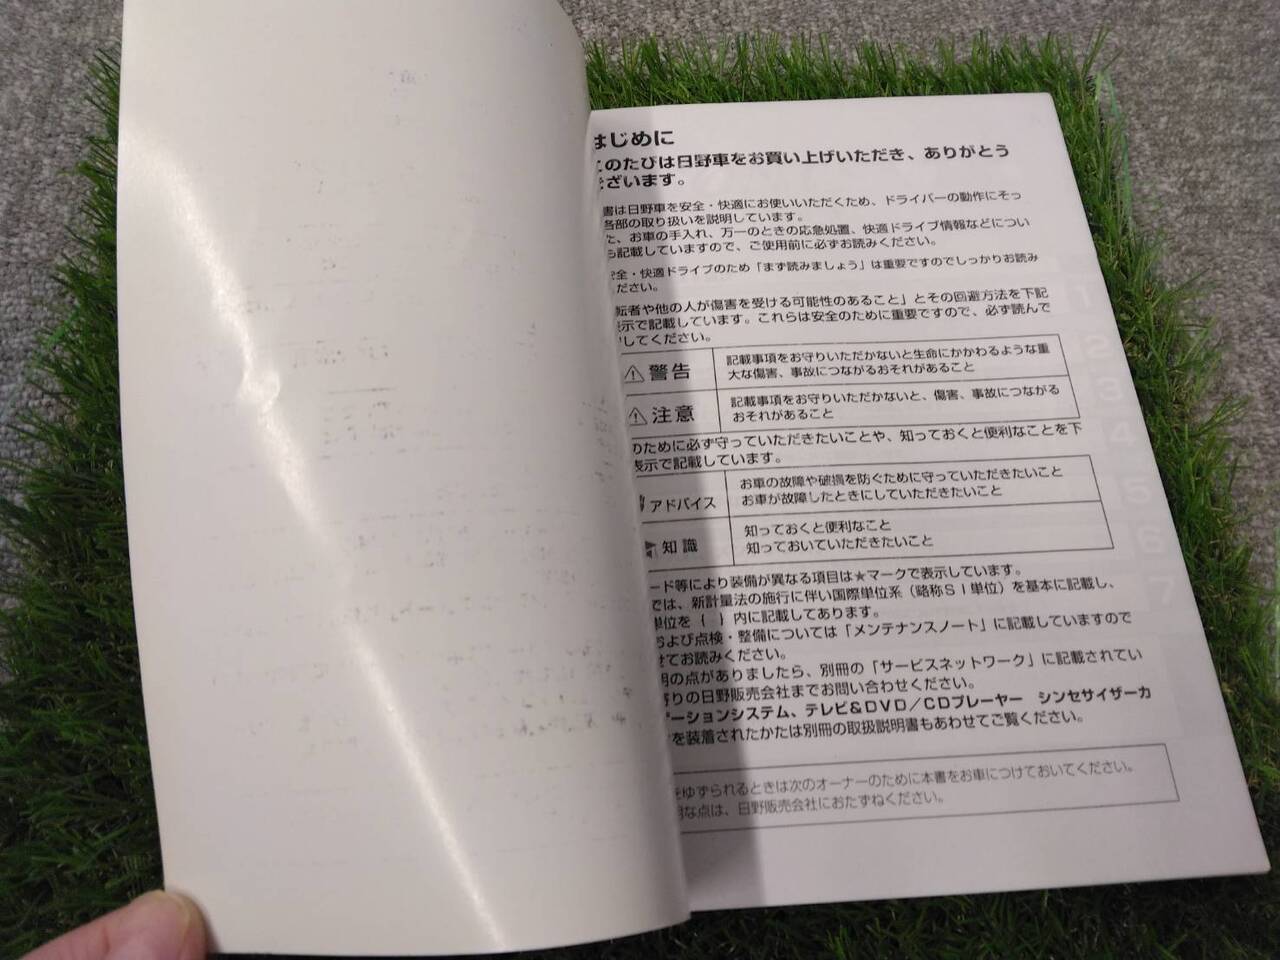 はじめに
このたびは日野車をお買い上げいただき、ありがとう
ございます。
書は日野車を安全・快適にお使いいただくため、ドライバーの動作にそっ
各部の取り扱いを説明しています。
た、お車の手入れ、万一のときの応急処置、快適ドライブ情報などについ
も記載していますので、ご使用前に必ずお読みください。
安全・快適ドライブのため「まず読みましょう」は重要ですのでしっかりお読み
ださい。
転者や他の人が傷害を受ける可能性のあること」とその回避方法を下記
表示で記載しています。これらは安全のために重要ですので、必ず読んで
してください。
警告 記載事項をお守りいただかないと生命にかかわるような重
大な傷害、事故につながるおそれがあること
注意 記載事項をお守りいただかないと、傷害、事故につながる
おそれがあること
のために必ず守っていただきたいことや、知っておくと便利なことを下
表示で記載しています。
アドバイス お車の故障や破損を防ぐために守っていただきたいこと
お車が故障したときにしていただきたいこと
知識 知っておくと便利なこと
知っておいていただきたいこと
ード等により装備が異なる項目は★マークで表示しています。
では、新計量法の施行に伴い国際単位系（略称ＳＩ単位）を基本に記載し、
単位を｛ ｝内に記載してあります。
および点検・整備については「メンテナンスノート」に記載していますので
せてお読みください。
明の点がありましたら、別冊の「サービスネットワーク」に記載されてい
寄りの日野販売会社までお問い合わせください。
ーションシステム、テレビ&DVD／CDプレーヤー シンセサイザーカ
を装着されたかたは別冊の取扱説明書もあわせてご覧ください。
をゆずられるときは次のオーナーのために本書をお車につけておいてください。
明な点は、日野販売会社におたずねください。
1
2
3
4
5
6
7